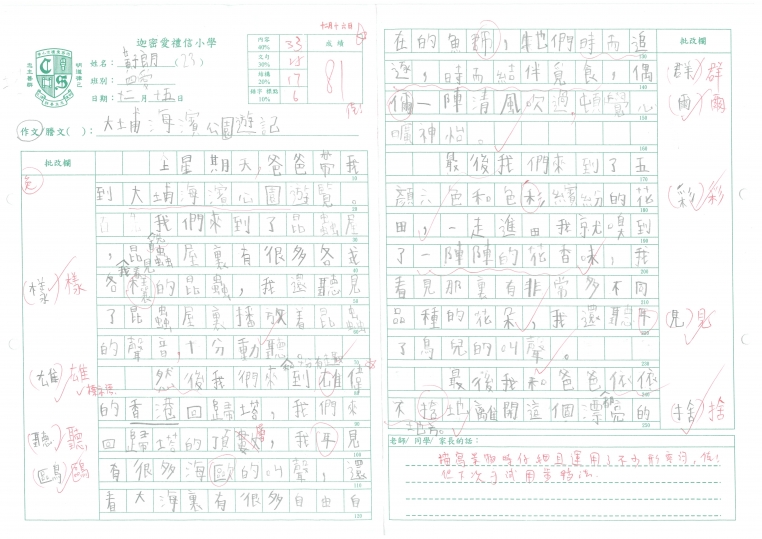 迦密愛禮信小學
姓名：
班別：四
日期：十二月十五日
內容 40% 33
文句 30%
結構 20% 17
錯字 標點 10% 6
成績
81
作文/謄文( )：大埔海濱公園遊記
批改欄
上星期天，爸爸帶我
到大埔海濱公園遊覽。
我們來到了昆蟲屋
，昆蟲屋裏有很多各式
各樣的昆蟲，我還聽見
(樣) 樣
了昆蟲屋裏播放着昆蟲
的聲音，十分動聽。
然後我們來到雄偉
(雄) 雄
的香港回歸塔，我們來
回歸塔的頂，我見
(聽) 聽
有很多海歐的叫聲，還
(鷗) 鷗
看大海裏有很多自由自
批改欄
在的魚群，牠們時而追
(群) 群
逐，時而結伴覓食，偶
爾一陣清風吹過，頓覺心
(爾) 爾
曠神怡。
最後我們來到了五
顏六色和色彩繽紛的花
(彩) 彩
田，一走進田我就嗅到
了一陣陣的花香味，我
看見那裏有非常多不同
品種的花朵，我還聽見
(見) 見
了鳥兒的叫聲。
最後我和爸爸依依
不捨地離開這個漂亮的
(捨) 捨
地方。
老師/同學/家長的話：
描寫景物時仔細且運用了不少形容詞，佳！
但下次可試用